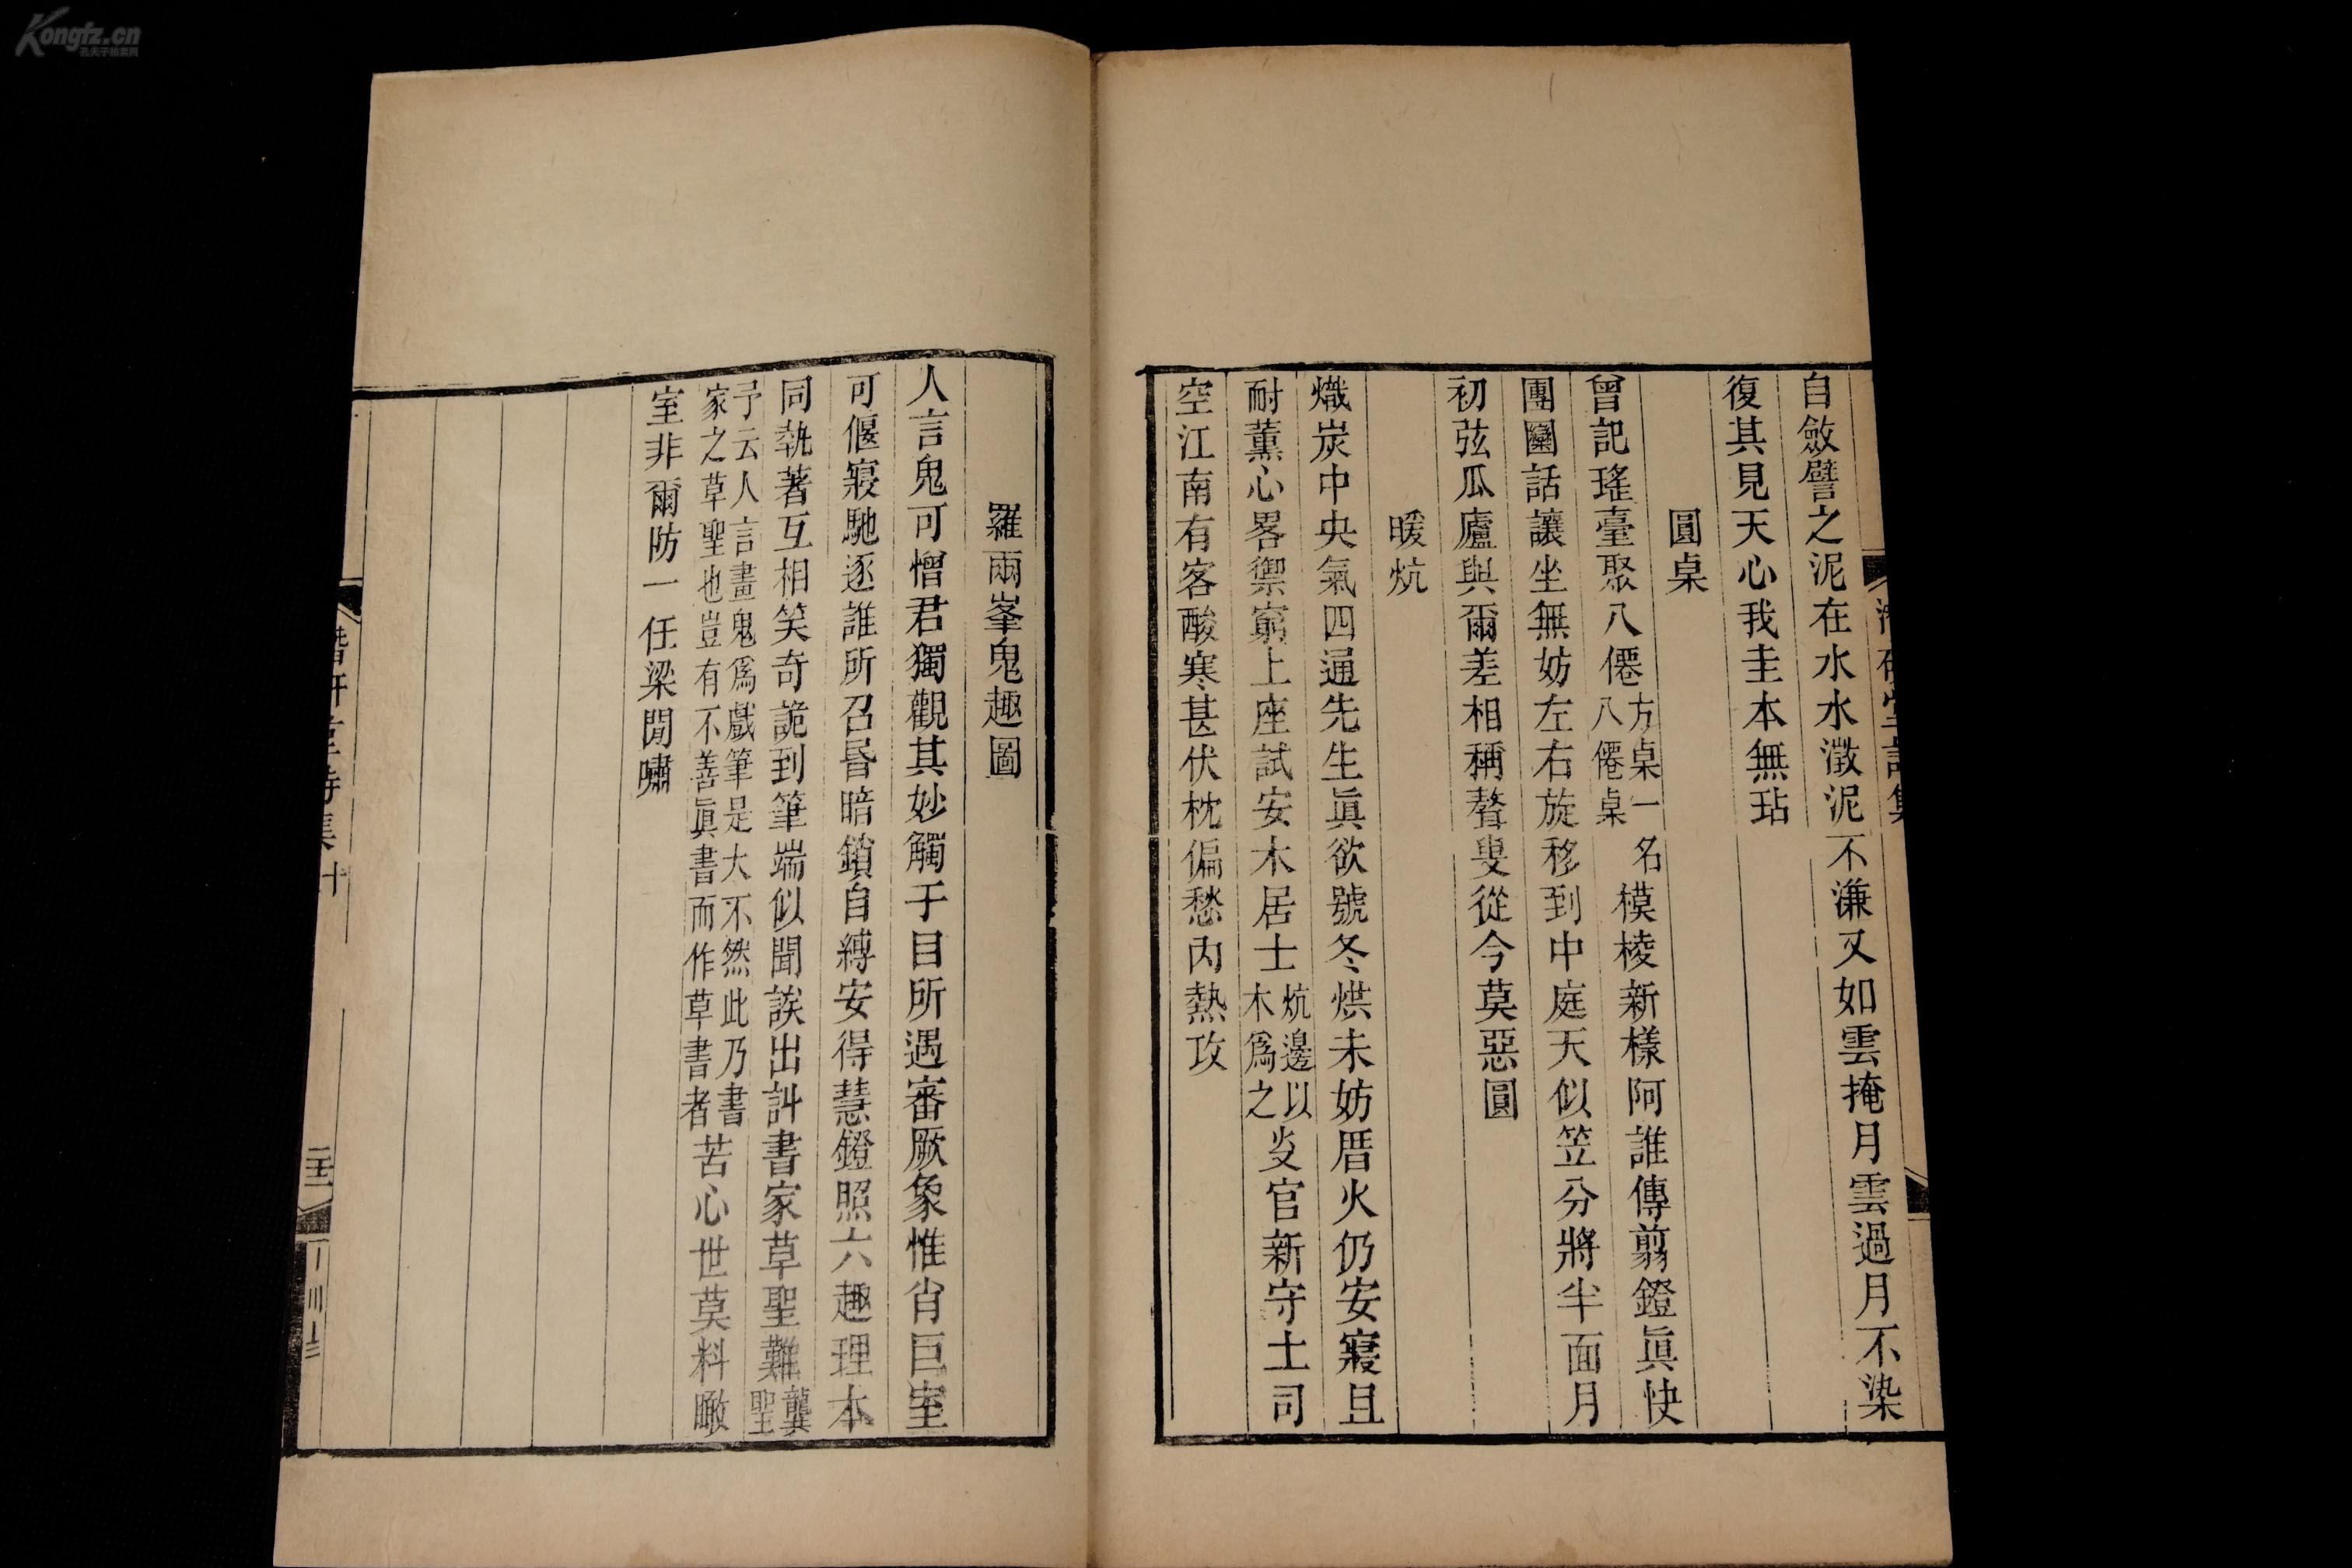 自斂譬之泥在水水澂泥不溓又如雲掩月雲過月不染
復其見天心我圭本無玷
圓桌
曾記瑤臺聚八僊方桌一名八僊桌模棱新樣阿誰傳翦鐙眞快
團圞話讓坐無妨左右旋移到中庭天似笠分將半面月
初弦瓜廬與爾差相稱聱叟從今莫惡圓
暖炕
熾炭中央氣四通先生眞欲號冬烘未妨厝火仍安寢且
耐薰心畧禦窮上座試安木居士炕邊以木爲之官新守土司
空江南有客酸寒甚伏枕偏愁內熱攻
羅兩峯鬼趣圖
人言鬼可憎君獨觀其妙觸于目所遇審厥象惟肖巨室
可偃寢馳逐誰所召昬暗鎖自縛安得慧鐙照六趣理本
同執著互相笑奇詭到筆端似聞誒出訆書家草聖難龔聖
予云人言畫鬼爲戲筆是大不然此乃書家之草聖也豈有不善眞書而作草書者苦心世莫料瞰
室非爾防一任梁閒嘯
潛研堂詩集
潛研堂詩集十
Kongfz.cn
孔夫子拍卖网